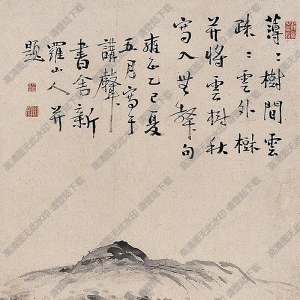 薄々樹間雲
疎々雲外樹
并將雲樹秋
寫入無聲句
雍正乙巳夏
五月寫于
講聲
書舍新
羅山人并
題